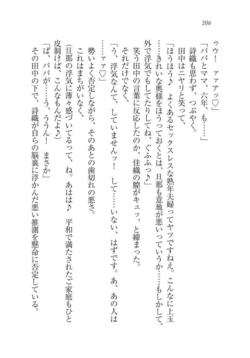 206
ゥウ！　ァアァ♡」
「パパとママ、六年、も……」
詩織も思わず、つぶやく。
田中はニヤリと笑って、
「ほうほう♪　よくあるセックスレスな熟年夫婦ってヤツですねえ。こんなに上玉
……きれいな奥様をほうっておくとは、旦那も意地が悪いっていうか……もしかして
外で浮気でもしてたりして、ぐふふっ♪」
笑う田中の言葉に反応したのか、佳織の膣がキュッと締まった。
それだけでなく、
「う、浮気なんて、していませんッ！　して……いない、はずです。あ、あの人は
……ァァ♡」
勢いよく否定しながら、そのあとの歯切れの悪さ。
これはまちがいなく、
（旦那の浮気に薄々感づいてるって、ね。あはは♪　平和で満たされたご家庭もひと
皮剥けば……か♪）
その田中の下で、詩織が自らの脳裏に浮かんだ悪い推測を懸命に否定している。
（ぱ、パパが……う、ううん！　まさか）